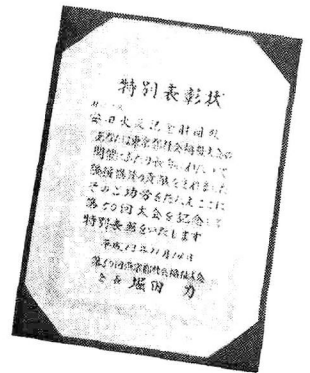 特別表彰状
安田火災記念財団殿
あなたは東京都社会福祉大会の
開催にあたり長年にわたって
をされました
そのご功労をたたえここに
第50回大会を記念して
特別表彰をいたします
平成13年11月14日
第50回東京都社会福祉大会
会長 堀田 力